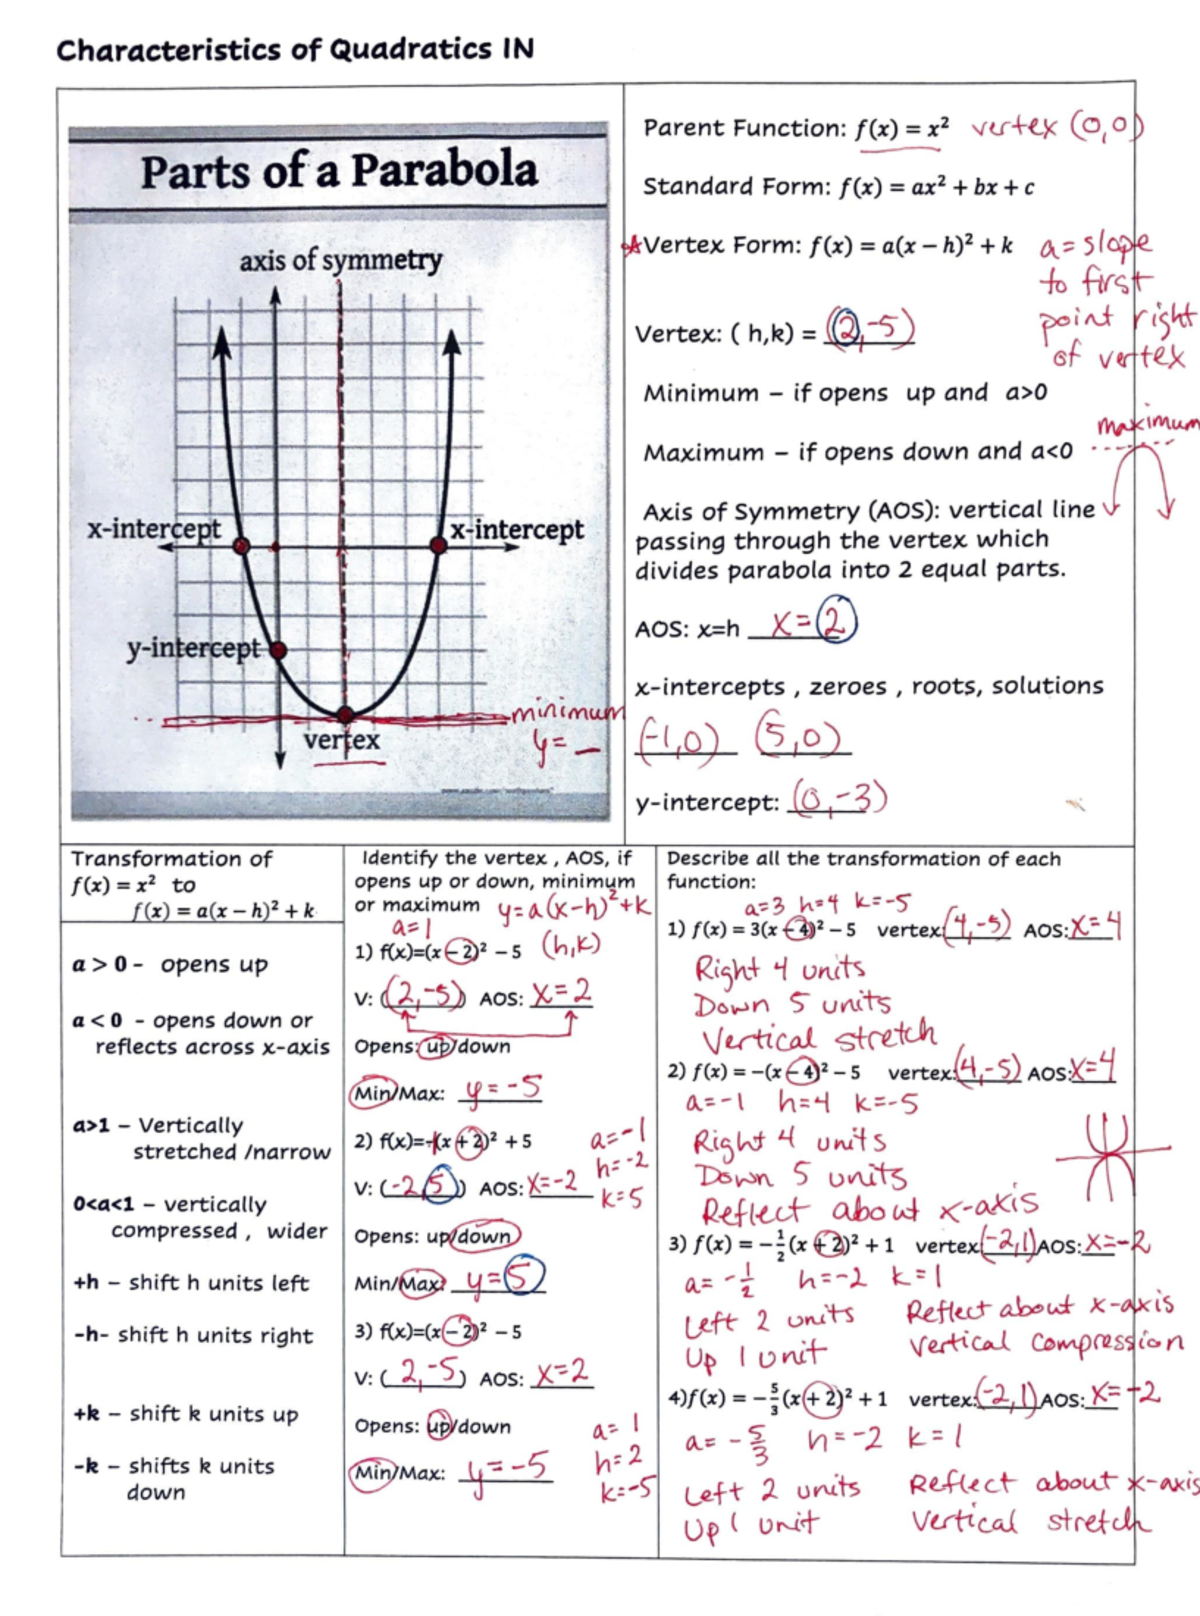 Characteristics of Quadratics IN
Parts of a Parabola
axis of symmetry
x-intercept
x-intercept
y-intercept
minimum
vertex
y= _
Parent Function: f(x) = x² vertex (0,0)
Standard Form: f(x) = ax² + bx + c
Vertex Form: f(x) = a(x – h)² + k
a = slope
to first
point right
of vertex
Vertex: ( h,k) = (2,-5)
Minimum – if opens up and a>0
maximum
Maximum – if opens down and a<0
Axis of Symmetry (AOS): vertical line
passing through the vertex which
divides parabola into 2 equal parts.
AOS: x=h x=2
x-intercepts , zeroes , roots, solutions
(-1,0) (5,0)
y-intercept: (0,-3)
Transformation of
f(x) = x² to
f(x) = a(x – h)² + k
a > 0 - opens up
a < 0 - opens down or
reflects across x-axis
a>1 – Vertically
stretched /narrow
0<a<1 – vertically
compressed , wider
+h – shift h units left
-h- shift h units right
+k – shift k units up
-k – shifts k units
down
Identify the vertex , AOS, if
opens up or down, minimum
or maximum y=a(x-h)²+k
a=1
1) f(x)=(x – 2)² – 5 (h,k)
V: (2,-5) AOS: x=2
Opens: up/down
Min/Max: y=-5
2) f(x)=-1(x + 2)² + 5
a=-1
h=-2
k=5
V: (-2,5) AOS: x=-2
Opens: up/down
Min/Max: y=5
3) f(x)=(x – 2)² – 5
V: (2,-5) AOS: x=2
Opens: up/down
Min/Max: y=-5
a=1
h=2
k=-5
Describe all the transformation of each
function:
a=3 h=4 k=-5
1) f(x) = 3(x – 4)² – 5 vertex:(4,-5) AOS:x=4
Right 4 units
Down 5 units
Vertical stretch
2) f(x) = –(x – 4)² – 5 vertex:(4,-5) AOS:x=4
a=-1 h=4 k=-5
Right 4 units
Down 5 units
Reflect about x-axis
3) f(x) = –½(x + 2)² + 1 vertex(-2,1) AOS: x=-2
a= -½ h=-2 k=1
Left 2 units Reflect about x-axis
Up 1 unit Vertical compression
4)f(x) = –5/3(x + 2)² + 1 vertex:(-2,1) AOS: x=-2
a= -5/3 h=-2 k=1
Left 2 units Reflect about x-axis
Up 1 unit Vertical stretch